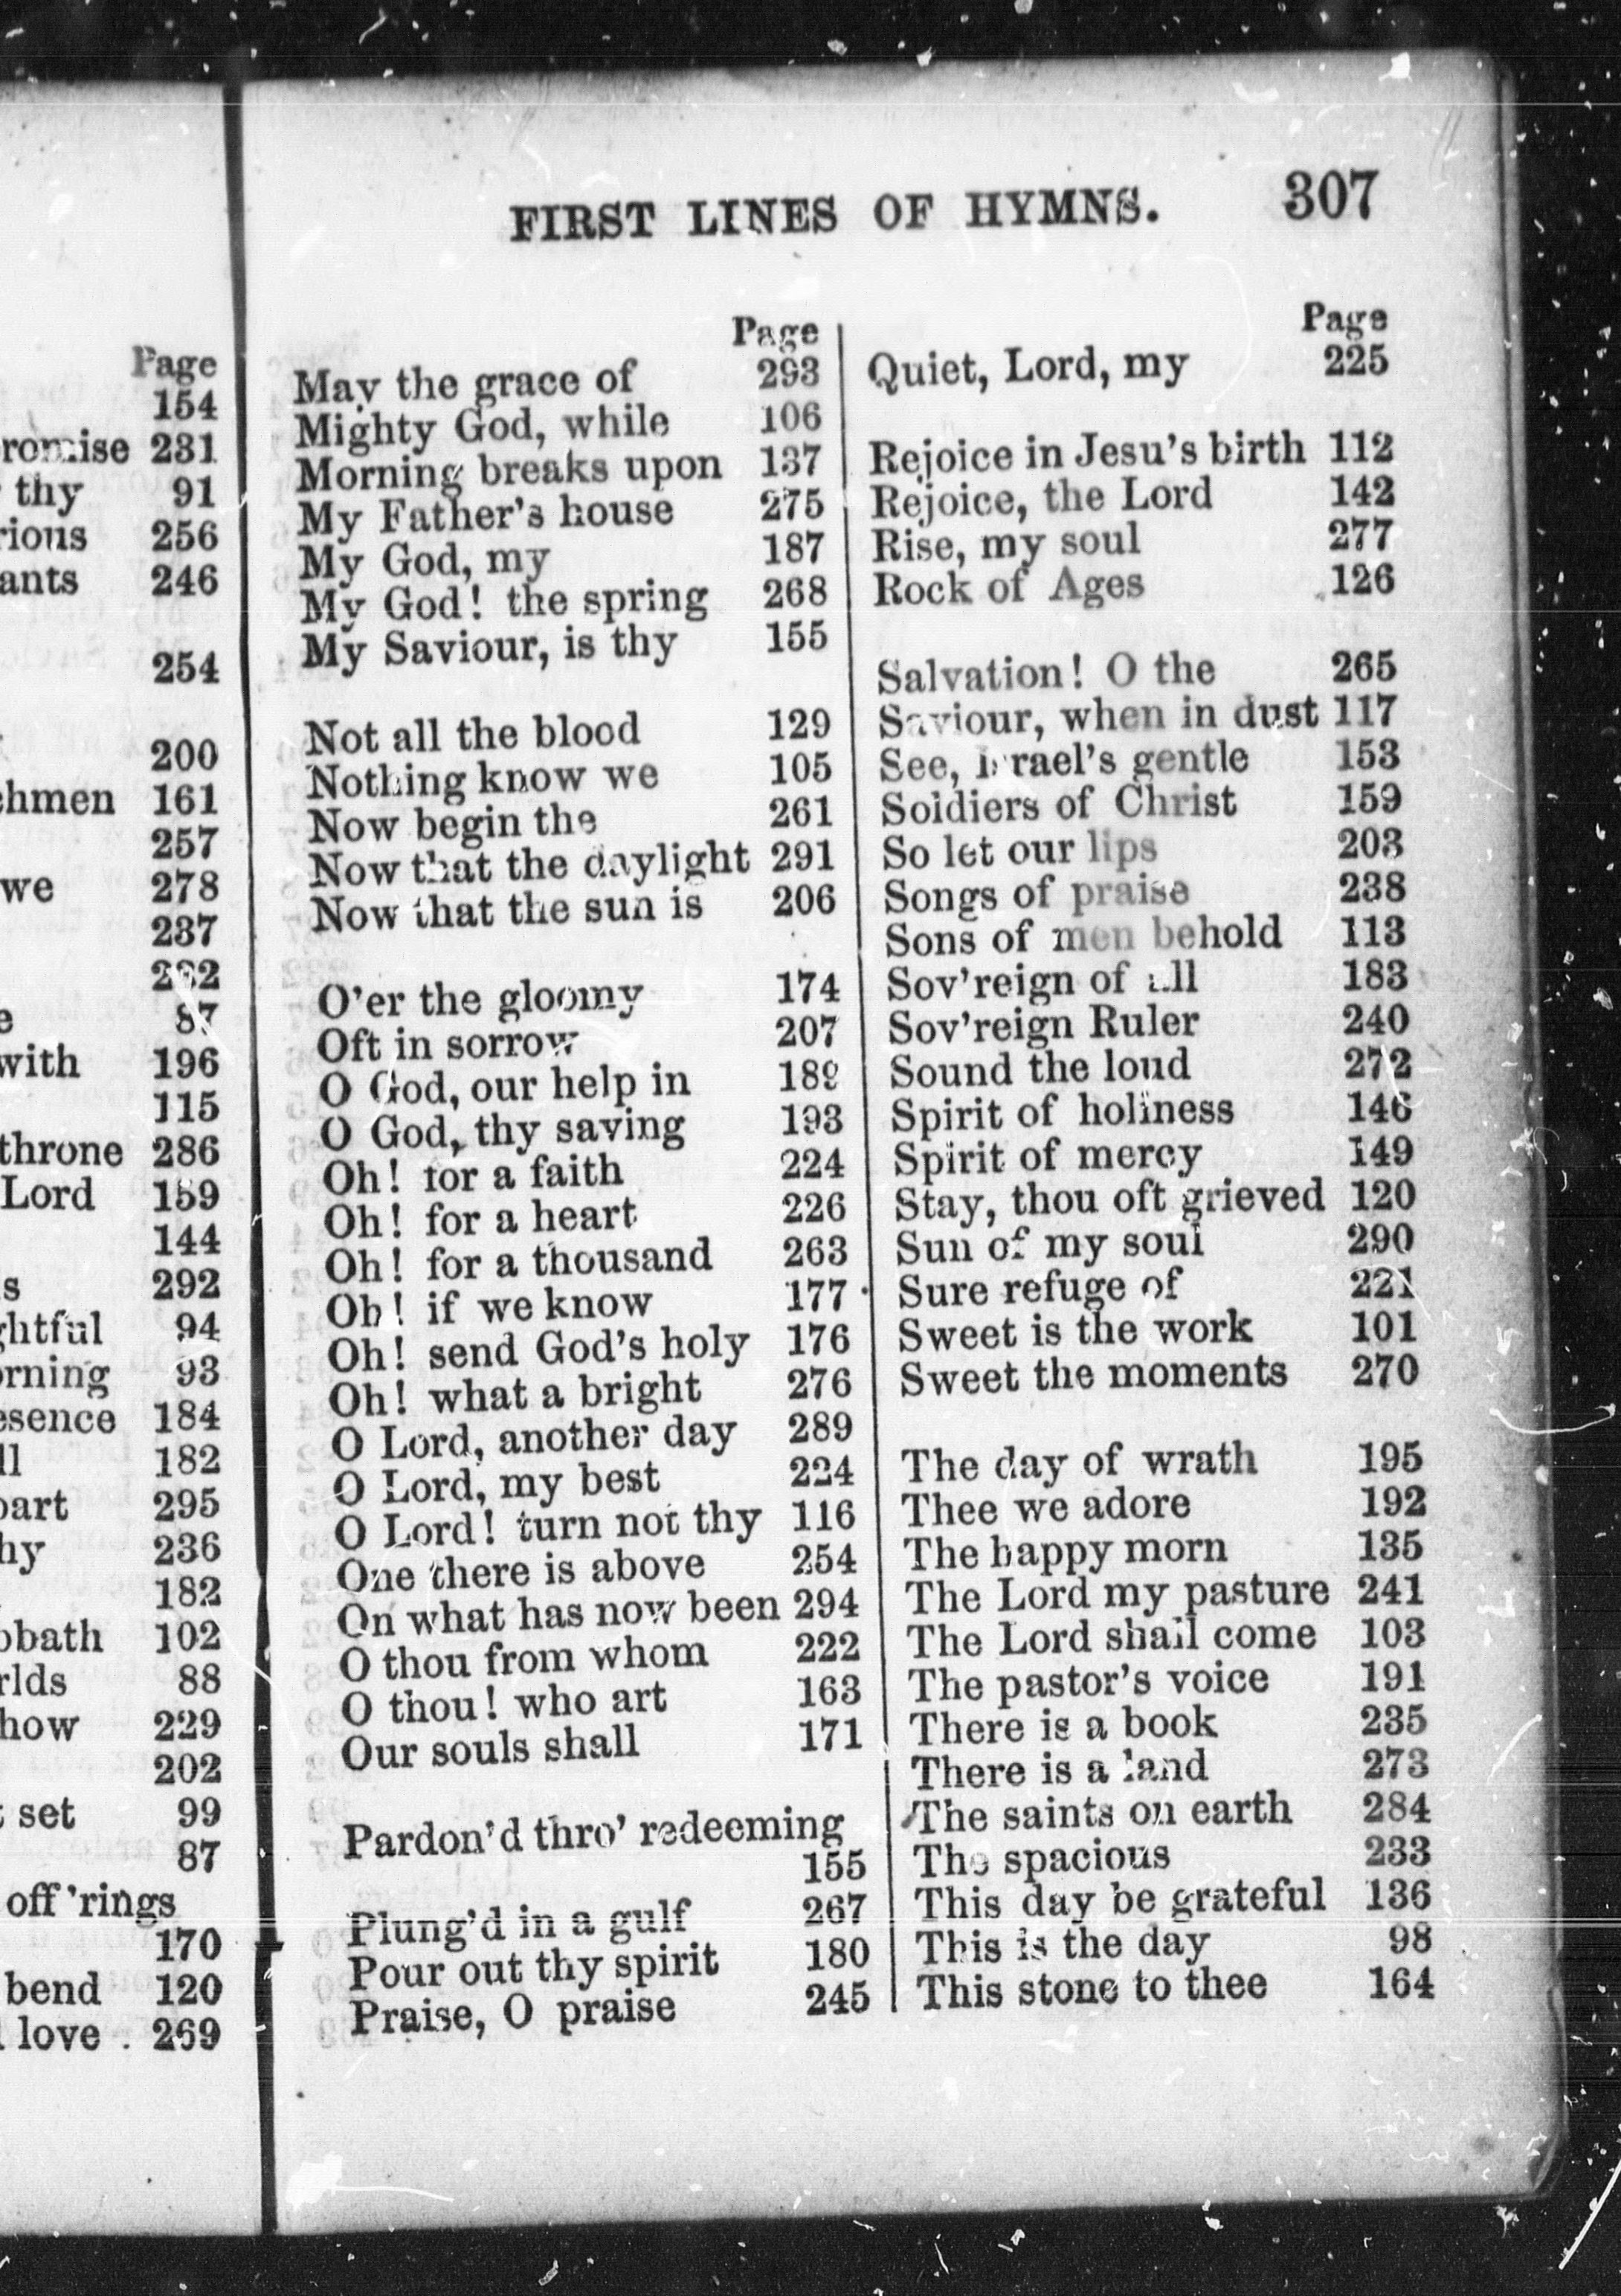 Page
154
romise 231
thy 91
rious 256
ants 246
254
200
chmen 161
257
we 278
237
232
e 87
with 196
115
throne 286
Lord 159
144
s 292
ghtful 94
orning 93
esence 184
ll 182
part 295
hy 236
182
bbath 102
rlds 88
how 229
202
set 99
87
off'rings
170
bend 120
love . 269
FIRST LINES OF HYMNS. 307
Page
May the grace of 293
Mighty God, while 106
Morning breaks upon 137
My Father's house 275
My God, my 187
My God! the spring 268
My Saviour, is thy 155
Not all the blood 129
Nothing know we 105
Now begin the 261
Now that the daylight 291
Now that the sun is 206
O'er the gloomy 174
Oft in sorrow 207
O God, our help in 189
O God, thy saving 193
Oh! for a faith 224
Oh! for a heart 226
Oh! for a thousand 263
Oh! if we know 177
Oh! send God's holy 176
Oh! what a bright 276
O Lord, another day 289
O Lord, my best 224
O Lord! turn not thy 116
One there is above 254
On what has now been 294
O thou from whom 222
O thou! who art 163
Our souls shall 171
Pardon'd thro' redeeming
155
Plung'd in a gulf 267
Pour out thy spirit 180
Praise, O praise 245
Page
Quiet, Lord, my 225
Rejoice in Jesu's birth 112
Rejoice, the Lord 142
Rise, my soul 277
Rock of Ages 126
Salvation! O the 265
Saviour, when in dust 117
See, Israel's gentle 153
Soldiers of Christ 159
So let our lips 203
Songs of praise 238
Sons of men behold 113
Sov'reign of all 183
Sov'reign Ruler 240
Sound the loud 272
Spirit of holiness 146
Spirit of mercy 149
Stay, thou oft grieved 120
Sun of my soul 290
Sure refuge of 221
Sweet is the work 101
Sweet the moments 270
The day of wrath 195
Thee we adore 192
The happy morn 135
The Lord my pasture 241
The Lord shall come 103
The pastor's voice 191
There is a book 235
There is a land 273
The saints on earth 284
The spacious 233
This day be grateful 136
This is the day 98
This stone to thee 164